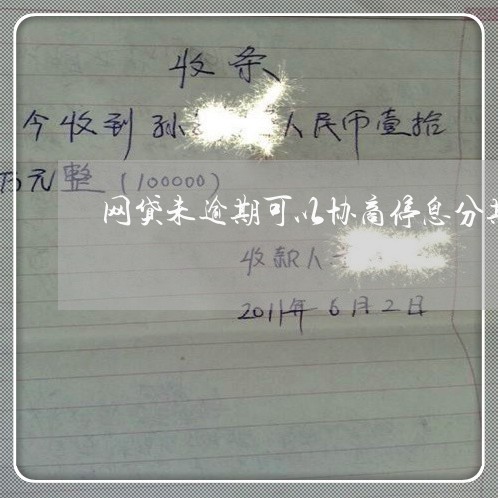 收条
今收到孙 人民币壹拾
万元整(100000)
网贷未逾期可以协商停息分期
收款人
2011年6月2日